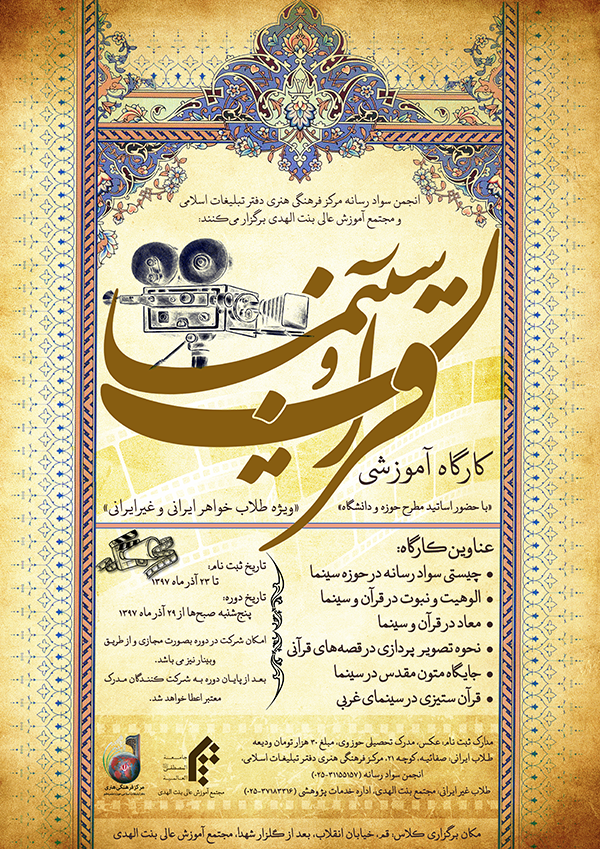 انجمن سواد رسانه مرکز فرهنگی هنری دفتر تبلیغات اسلامی
و مجتمع آموزش عالی بنت الهدی برگزار می‌کنند:
قرآن و سینما
کارگاه آموزشی
«با حضور اساتید مطرح حوزه و دانشگاه»
«ویژه طلاب خواهر ایرانی و غیرایرانی»
عناوین کارگاه:
• چیستی سواد رسانه در حوزه سینما
• الوهیت و نبوت در قرآن و سینما
• معاد در قرآن و سینما
• نحوه تصویر پردازی در قصه‌های قرآنی
• جایگاه متون مقدس در سینما
• قرآن ستیزی در سینمای غربی
تاریخ ثبت نام:
تا ۲۳ آذر ماه ۱۳۹۷
تاریخ دوره:
پنج‌شنبه صبح‌ها از ۲۹ آذر ماه ۱۳۹۷
امکان شرکت در دوره بصورت مجازی و از طریق
وبینار نیز می باشد.
بعد از پایان دوره به شرکت کنندگان مدرک
معتبر اعطا خواهد شد.
مدارک ثبت نام: عکس، مدرک تحصیلی حوزوی، مبلغ ۳۰ هزار تومان ودیعه
طلاب ایرانی: صفائیه، کوچه ۲۱، مرکز فرهنگی هنری دفتر تبلیغات اسلامی،
انجمن سواد رسانه (۳۱۱۵۵۱۵۷-۰۲۵)
طلاب غیر ایرانی: مجتمع بنت الهدی، اداره خدمات پژوهشی (۳۷۱۸۳۳۱۶-۰۲۵)
جامعة
المصطفی
العالمية
مجتمع آموزش عالی بنت الهدی
مرکز فرهنگی هنری
مکان برگزاری کلاس: قم، خیابان انقلاب، بعد از گلزار شهدا، مجتمع آموزش عالی بنت الهدی